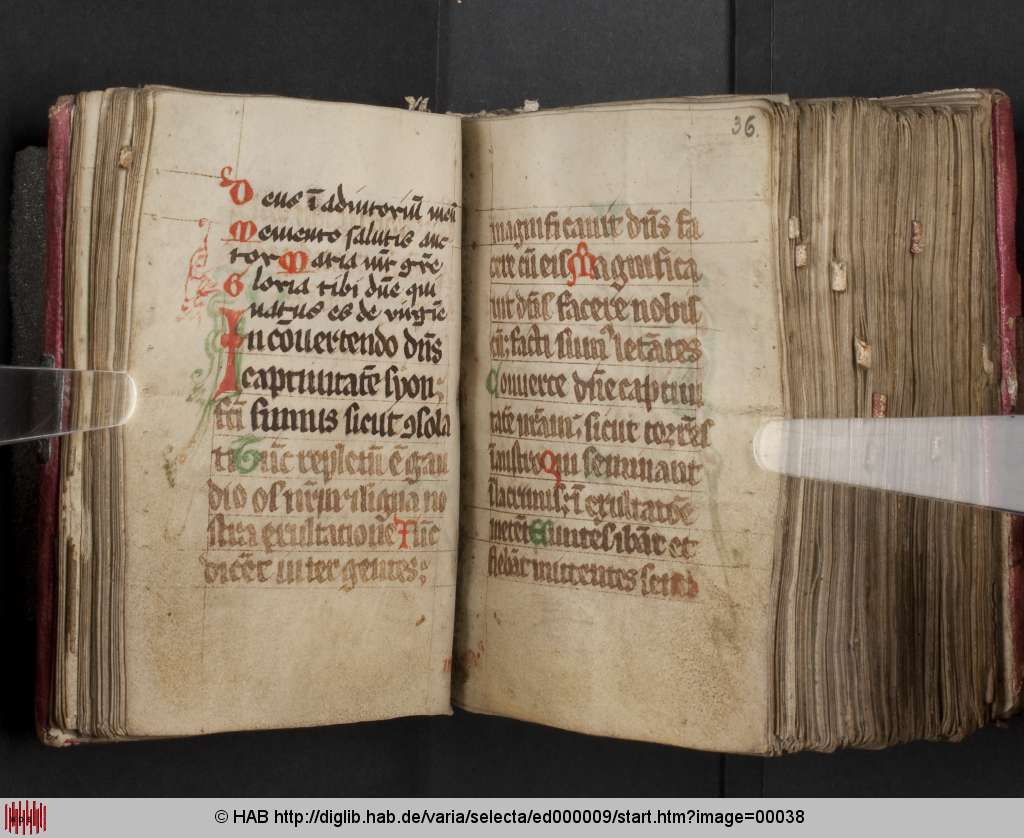 Deus ī adiutoriū meū
Memento salutis auc
tor Maria mr̄ grē
Gloria tibi dn̄e qui
natus es de virgīe
In cōuertendo dūs
captiuitatē syon:
fcī sumus sicut ꝯsola
ti Tūc repletū ē gau
dio os nr̄m: ⁊ ligna no
stra exultatiōe Tūc
dicēt inter gentes:
36.
magnificauit dūs fa
cere cū eis Magnifica
uit dūs facere nobis
cū: facti sum⁹ letātes
Conuerte dn̄e captiui
tatē nr̄am: sicut torrēs
ī austro Qui seminant
ī lacrimis: ī exultatōe
metēt Euntes ibāt et
flebāt mittentes semi
© HAB http://diglib.hab.de/varia/selecta/ed000009/start.htm?image=00038